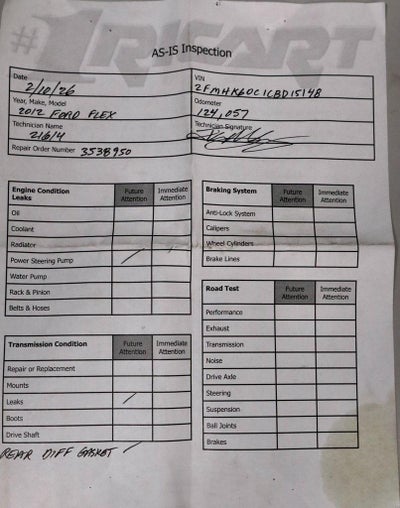 #1 RICART
AS-IS Inspection
Date
2/10/26
VIN
2FMHK60C1CBD15148
Year, Make, Model
2012 FORD FLEX
Odometer
124,057
Technician Name
21614
Technician Signature
Repair Order Number 3538950
Engine Condition
Leaks
Future Attention
Immediate Attention
Oil
Coolant
Radiator
Power Steering Pump
Water Pump
Rack & Pinion
Belts & Hoses
Braking System
Future Attention
Immediate Attention
Anti-Lock System
Calipers
Wheel Cylinders
Brake Lines
Transmission Condition
Future Attention
Immediate Attention
Repair or Replacement
Mounts
Leaks
Boots
Drive Shaft
REAR DIFF GASKET
Road Test
Future Attention
Immediate Attention
Performance
Exhaust
Transmission
Noise
Drive Axle
Steering
Suspension
Ball Joints
Brakes